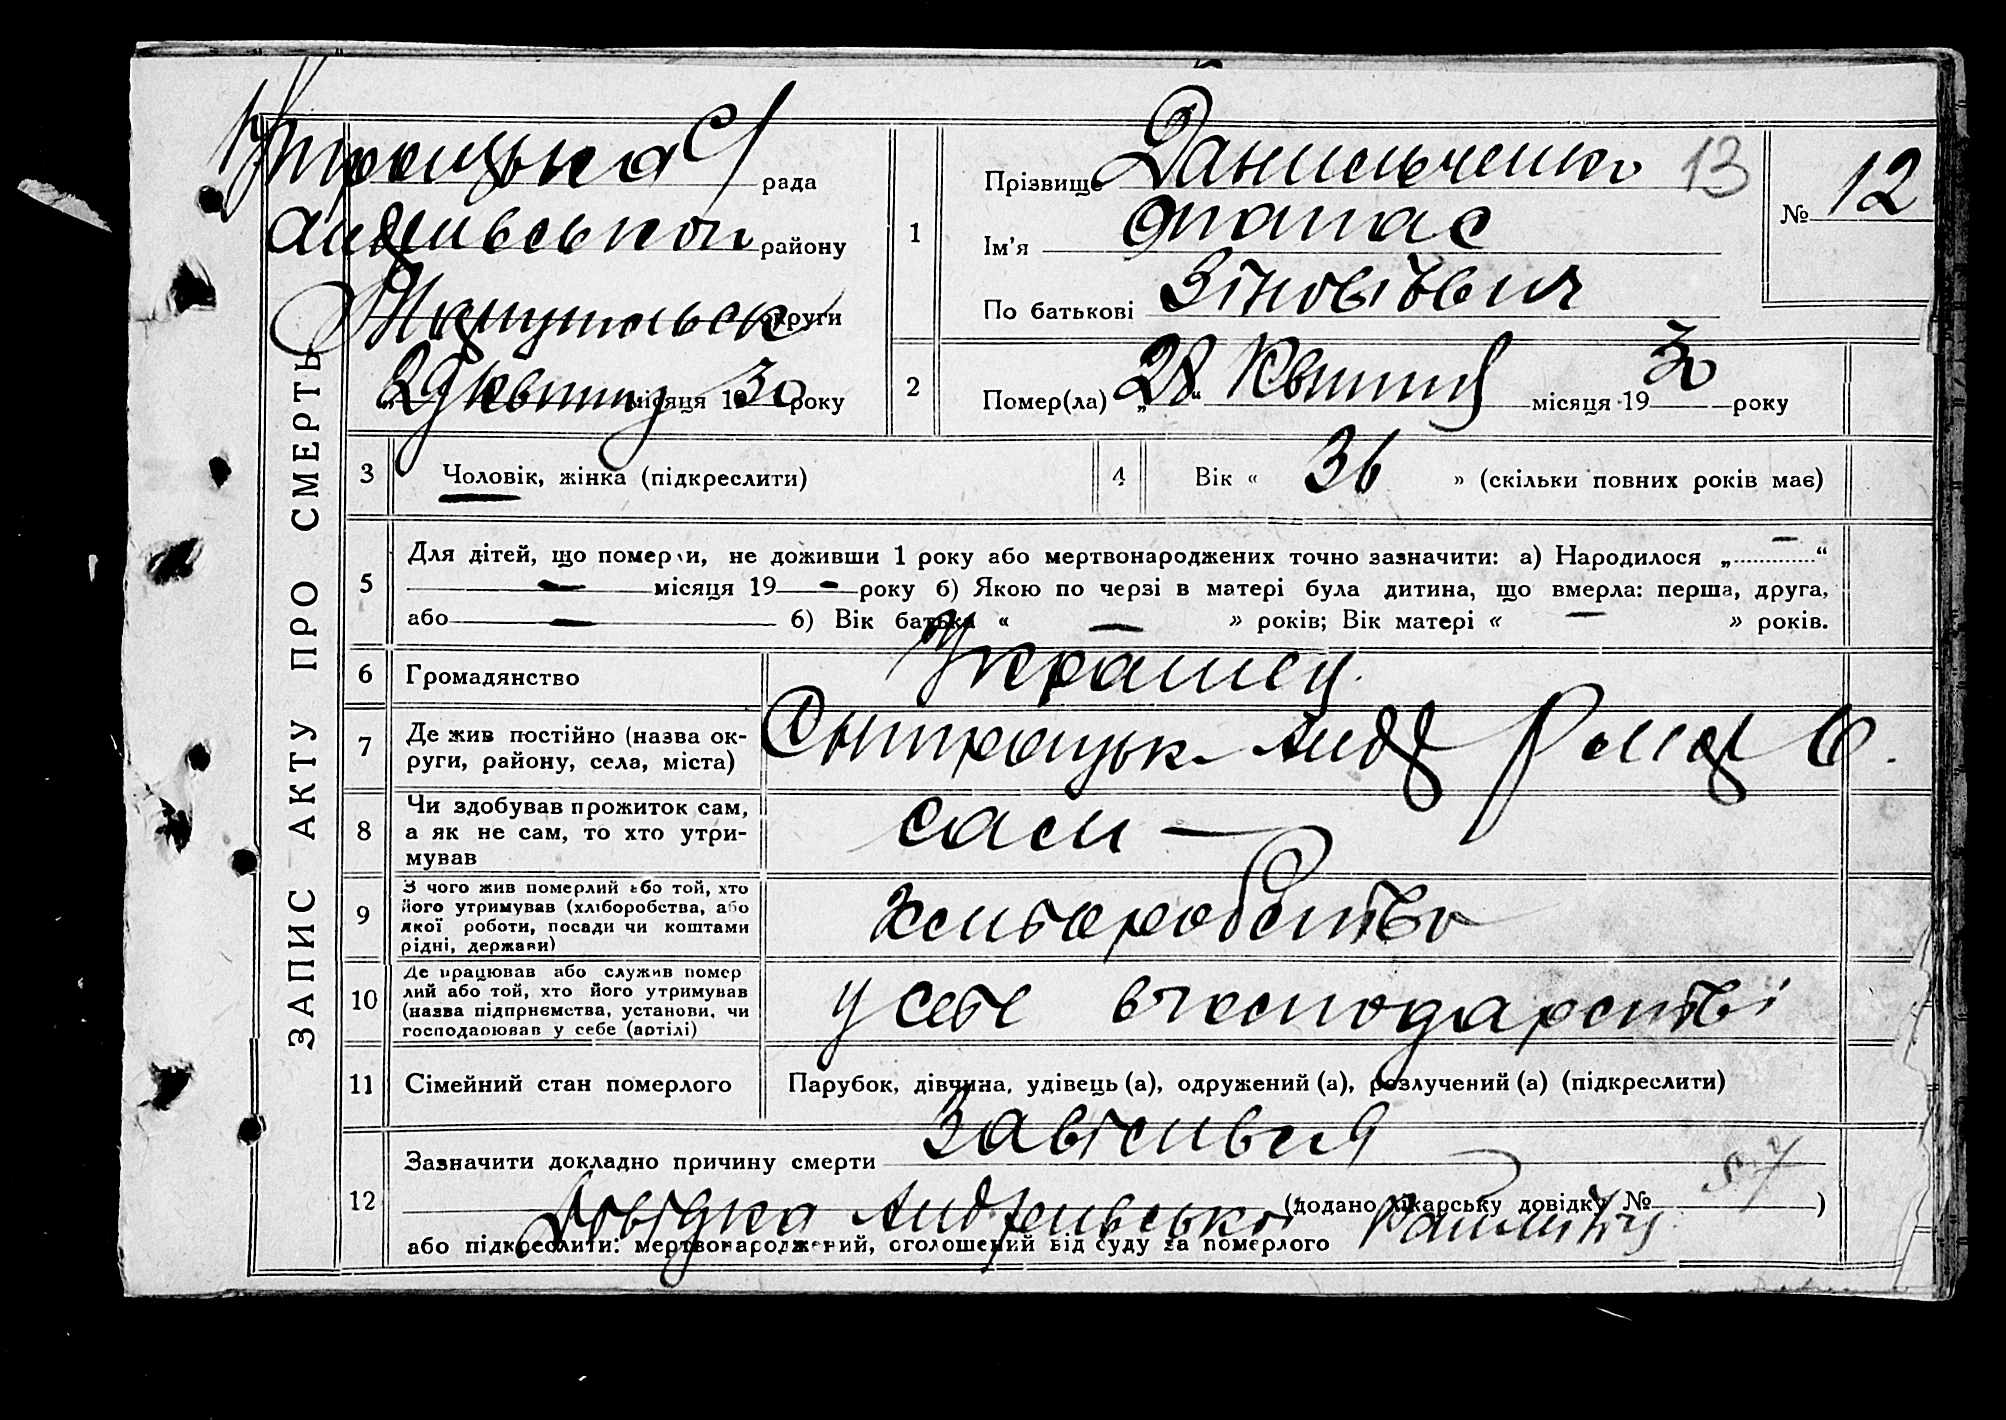 ЗАПИС АКТУ ПРО СМЕРТЬ
рада
району
округи
29 місяця 1930 року
1
Прізвище Данильченко 13
Ім'я Опанас
По батькові Зіновійович
№ 12
2 Помер(ла) „28“ Квітня місяця 1930 року
3 Чоловік, жінка (підкреслити)
4 Вік « 36 » (скільки повних років має)
5
Для дітей, що померли, не доживши 1 року або мертвонароджених точно зазначити: а) Народилося „ — “
— місяця 19 — року б) Якою по черзі в матері була дитина, що вмерла: перша, друга,
або — 6) Вік батька « — » років; Вік матері « — » років.
6 Громадянство Українец
7 Де жив постійно (назва ок-
руги, району, села, міста)
8 Чи здобував прожиток сам,
а як не сам, то хто утри-
мував
сам —
9 З чого жив померлий або той, хто
його утримував (хліборобства, або
якої роботи, посади чи коштами
рідні, держави)
10 Де працював або служив помер
лий або той, хто його утримував
(назва підприємства, установи, чи
господарював у себе (артілі)
у себе в господарстві
11 Сімейний стан померлого Парубок, дівчина, удівець (а), одружений (а), розлучений (а) (підкреслити)
12
Зазначити докладно причину смерти
(додано лікарську довідку № 57)
Довідка
або підкреслити: мертвонароджений, оголошений від суду за померлого